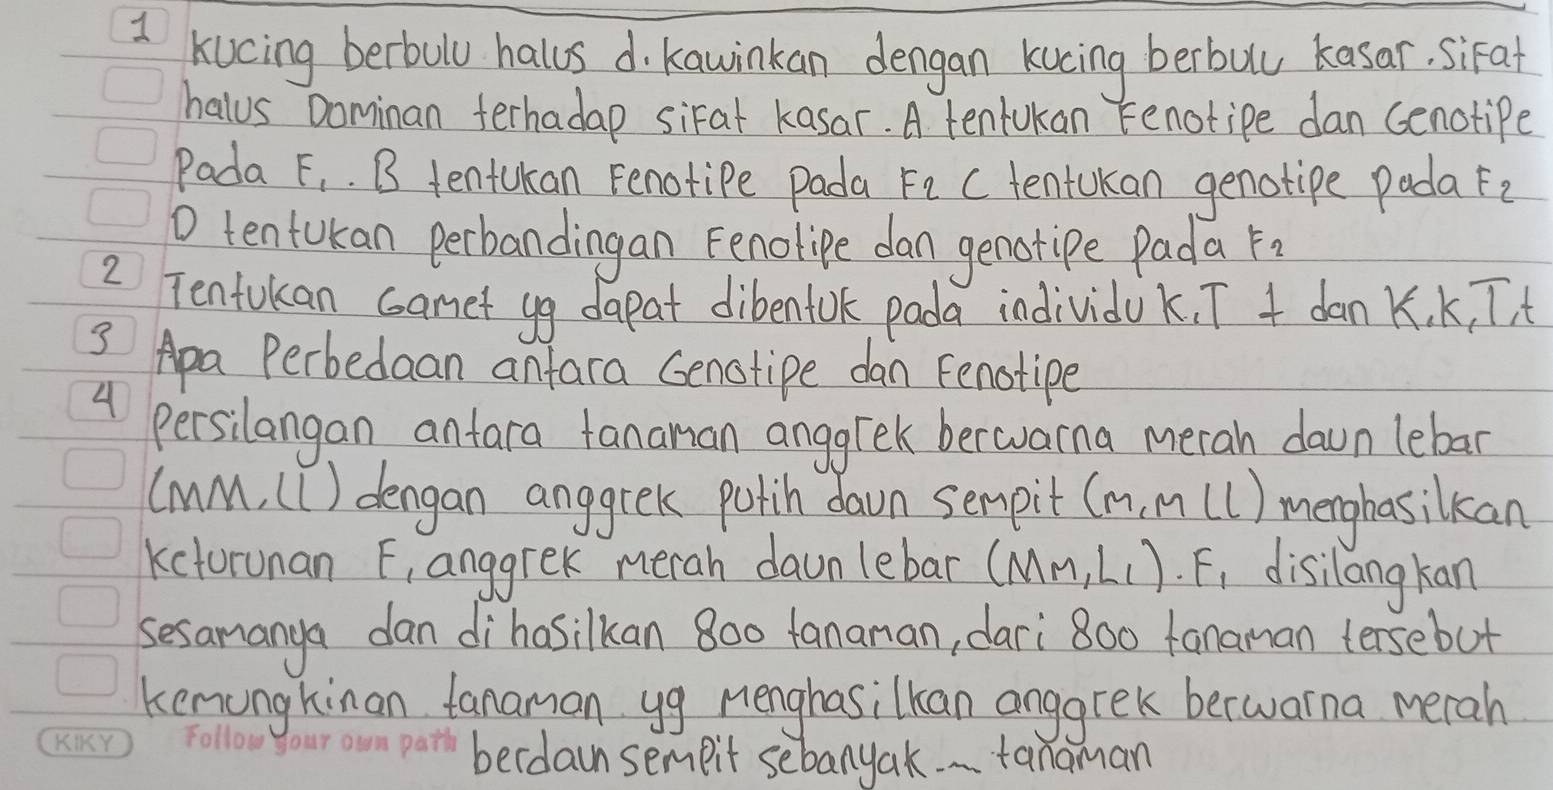 1 Kucing berbulu halus d. kawinkan dengan kucing berbulu kasar. Sifat
halus Dominan terhadap sifat kasar. A tentukan Fenotipe dan Genotipe
Pada F1. B tentukan Fenotipe pada F2 C tentukan genotipe pada F2
D tentukan perbandingan Fenotipe dan genotipe pada F2
2 Tentukan Gamet yg dapat dibentuk pada individu K,T t dan K,k,T,t
3 Apa Perbedaan antara Genotipe dan Fenotipe
4 Persilangan antara tanaman anggrek berwarna merah daun lebar
(MM,Ll) dengan anggrek putih daun sempit (m,m ll) menghasilkan
Keturunan F1 anggrek merah daun lebar (Mm,Ll). F1 disilangkan
sesamanya dan di hasilkan 800 tanaman, dari 800 tanaman tersebut
kemungkinan tanaman yg menghasilkan anggrek berwarna merah
KIKY Follow your own path berdaun sempit sebanyak... tanaman